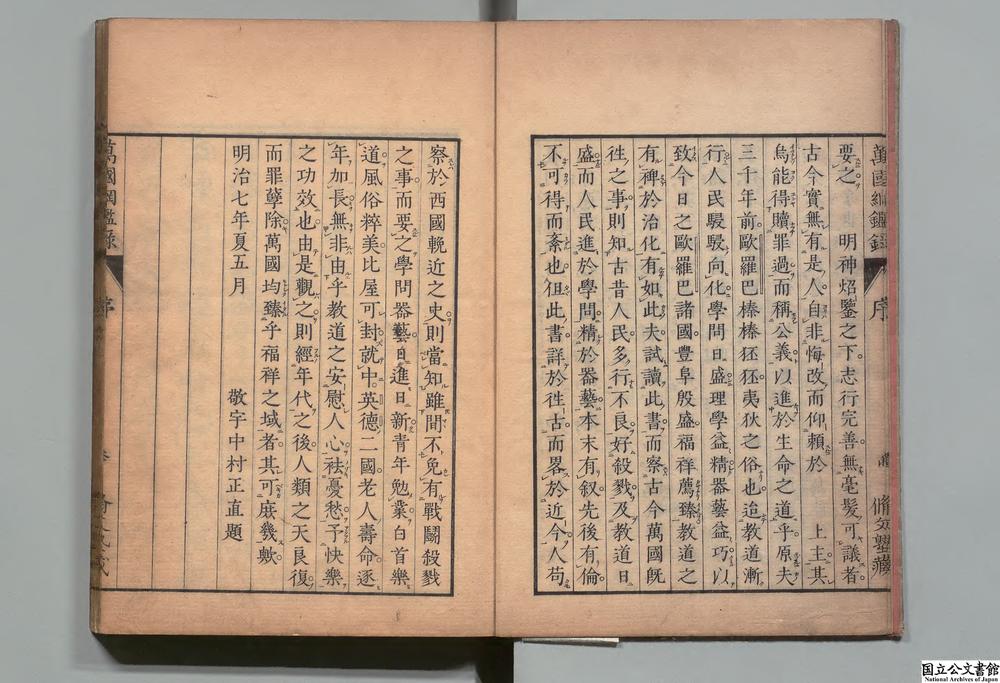 萬國綱鑑錄 序
要之 明神炤鑒之下志行完善無毫髮可議者
古今實無有是人自非悔改而仰賴於 上主其
烏能得贖罪過而稱公義以進於生命之道乎原夫
三千年前歐羅巴榛榛狉狉夷狄之俗也迨教道漸
行人民駸駸向化學問日盛理學益精器藝益巧以
致今日之歐羅巴諸國豐阜殷盛福祥薦臻教道之
有裨於治化有如此夫試讀此書而察古今萬國既
徃之事則知古昔人民多行不良好殺戮及教道日
盛而人民進於學問精於器藝本末有叙先後有倫
不可得而紊也但此書詳於徃古而畧於近今人苟
察於西國輓近之史則當知雖間不免有戰鬪殺戮
之事而要之學問器藝日進日新青年勉業白首樂
道風俗粹美比屋可封就中英德二國老人壽命逐
年加長無非由乎教道之安慰人心袪憂愁予快樂
之功效也由是觀之則經年代之後人類之天良復
而罪孽除萬國均臻乎福祥之域者其可庶幾歟
明治七年夏五月 敬宇中村正直題
萬國綱鑑錄 序
国立公文書館
National Archives of Japan